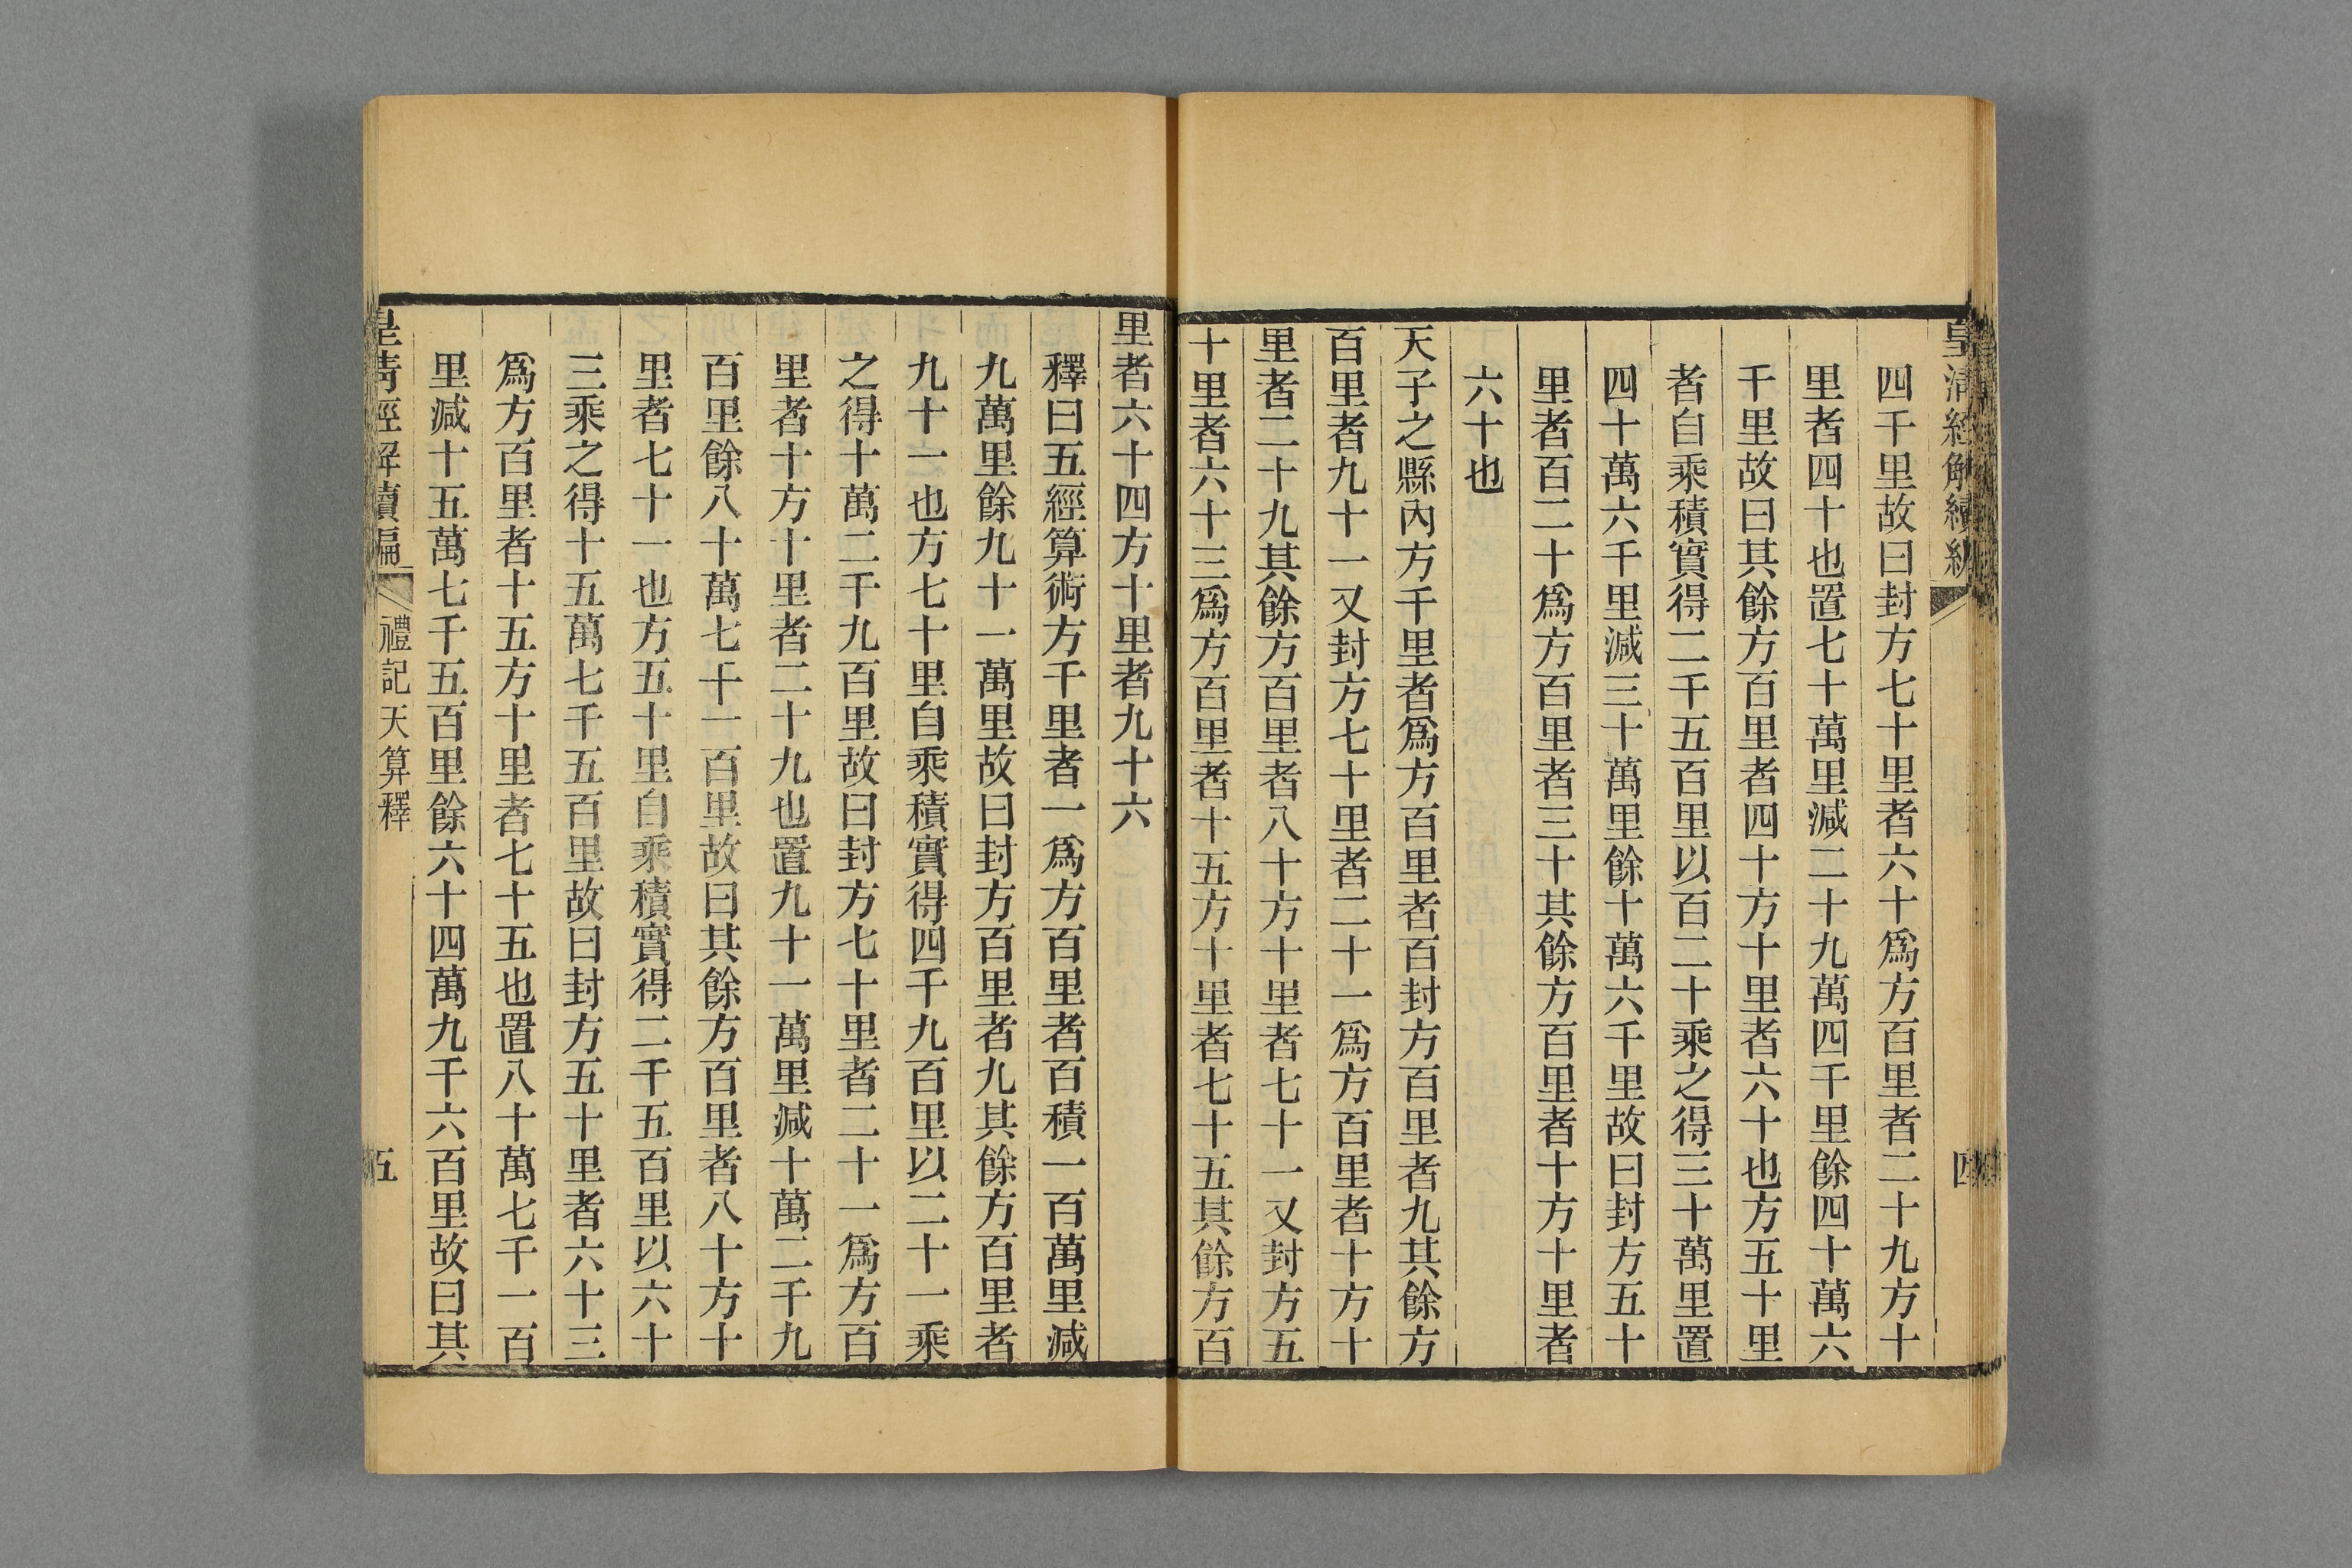 皇清經解續編
四
四千里故曰封方七十里者六十爲方百里者二十九方十
里者四十也置七十萬里減二十九萬四千里餘四十萬六
千里故曰其餘方百里者四十方十里者六十也方五十里
者自乘積實得二千五百里以百二十乘之得三十萬里置
四十萬六千里減三十萬里餘十萬六千里故曰封方五十
里者百二十爲方百里者三十其餘方百里者十方十里者
六十也
天子之縣內方千里者爲方百里者百封方百里者九其餘方
百里者九十一又封方七十里者二十一爲方百里者十方十
里者二十九其餘方百里者八十方十里者七十一又封方五
十里者六十三爲方百里者十五方十里者七十五其餘方百
里者六十四方十里者九十六
釋曰五經算術方千里者一爲方百里者百積一百萬里減
九萬里餘九十一萬里故曰封方百里者九其餘方百里者
九十一也方七十里自乘積實得四千九百里以二十一乘
之得十萬二千九百里故曰封方七十里者二十一爲方百
里者十方十里者二十九也置九十一萬里減十萬二千九
百里餘八十萬七千一百里故曰其餘方百里者八十方十
里者七十一也方五十里自乘積實得二千五百里以六十
三乘之得十五萬七千五百里故曰封方五十里者六十三
爲方百里者十五方十里者七十五也置八十萬七千一百
里減十五萬七千五百里餘六十四萬九千六百里故曰其
皇清經解續編
禮記天算釋
五